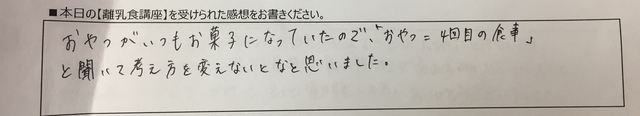 ■本日の【離乳食講座】を受けられた感想をお書きください。
おやつがいつもお菓子になっていたので、「おやつ=4回目の食事」
と聞いて考え方を変えないとなと思いました。